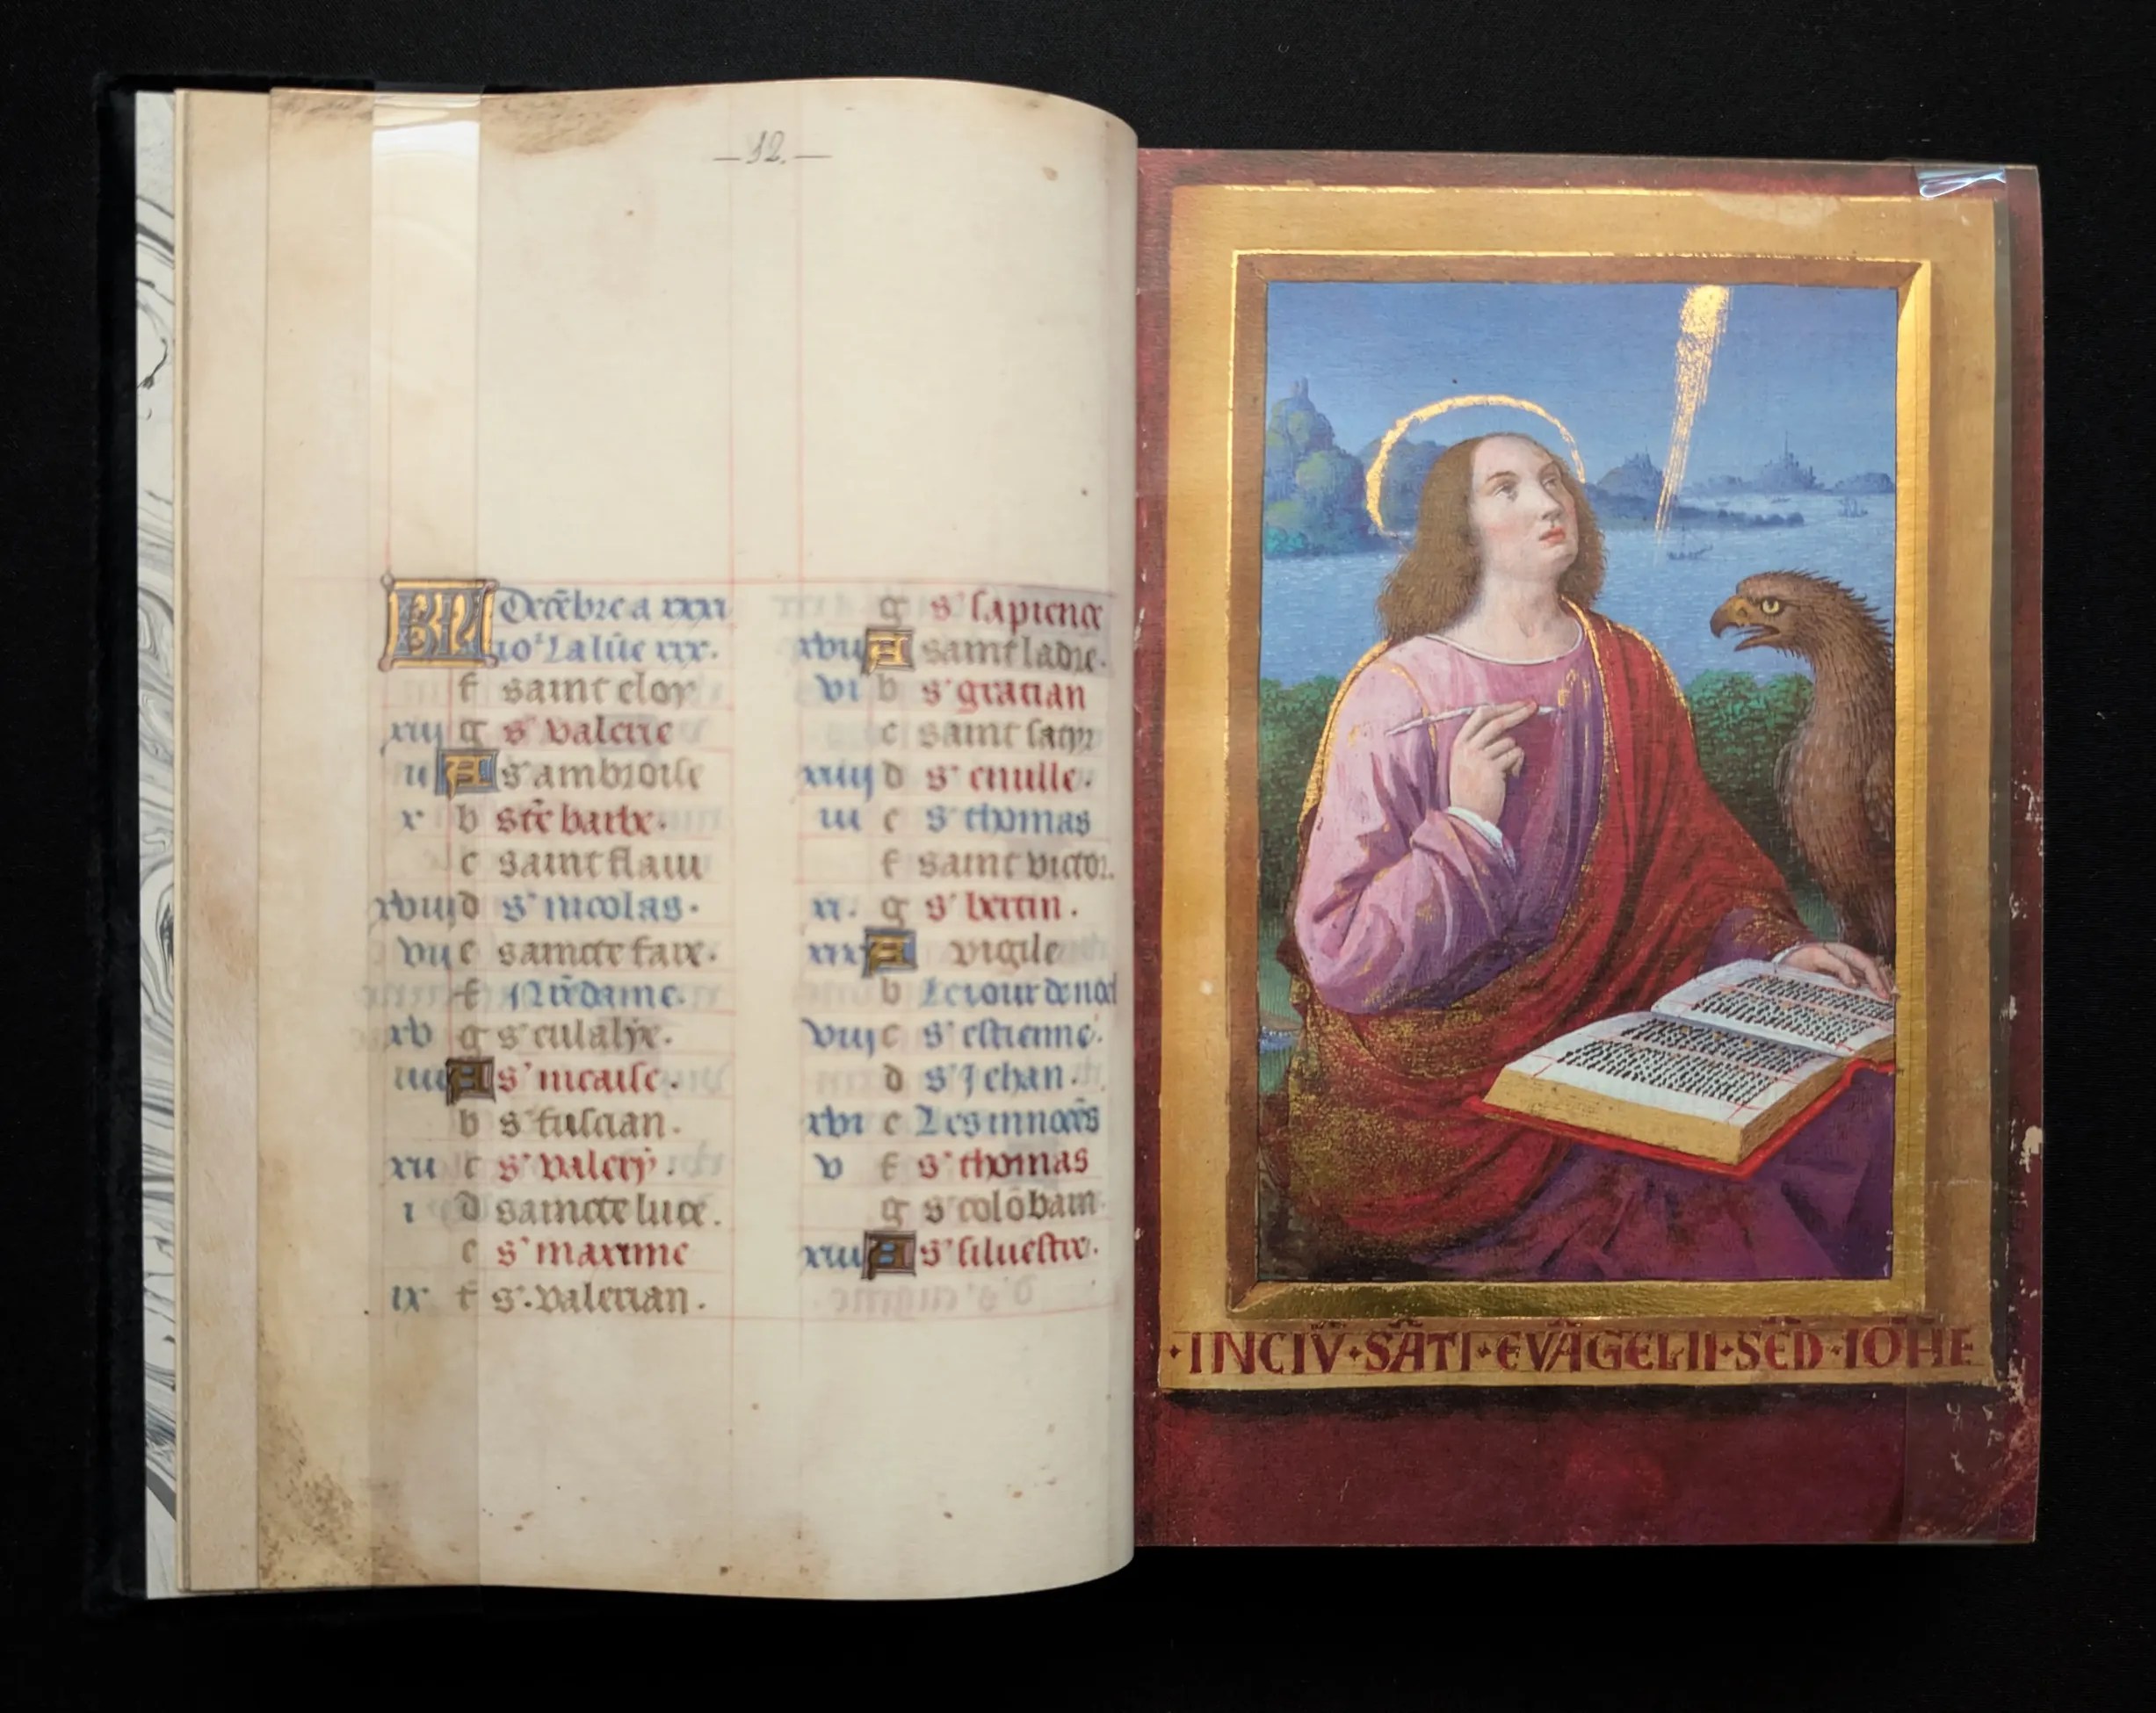 —12.—
Decēbre a xxxi
io² La lūe xxx.
f saint eloy
xiii g s' valerie
ii A s' ambroise
x b stē barbe.
c saint flaui
xviii d s' nicolas.
vii e saincte fare.
f Nr̄e dame.
xv g s' eulalye.
iiii A s' nicaise.
b s' fuscian.
xii c s' valery.
i d saincte luce.
e s' maxime
ix f s. valerian.
g s' sapience
xvii A saint ladre.
vi b s' gratian
c saint satyr
xiiii d s'
iii e s' thomas
f saint victor.
xi. g s' bertin.
xix A vigile
b Le iour de noel
viii c s' estienne.
d s' Jehan.
xvi e Les innocēs
v f s' thomas
g s' colōbain.
xiii A s' siluestre.
·INCIV̄·SĀTI·EVĀGELII·SĒD·IOHĒ